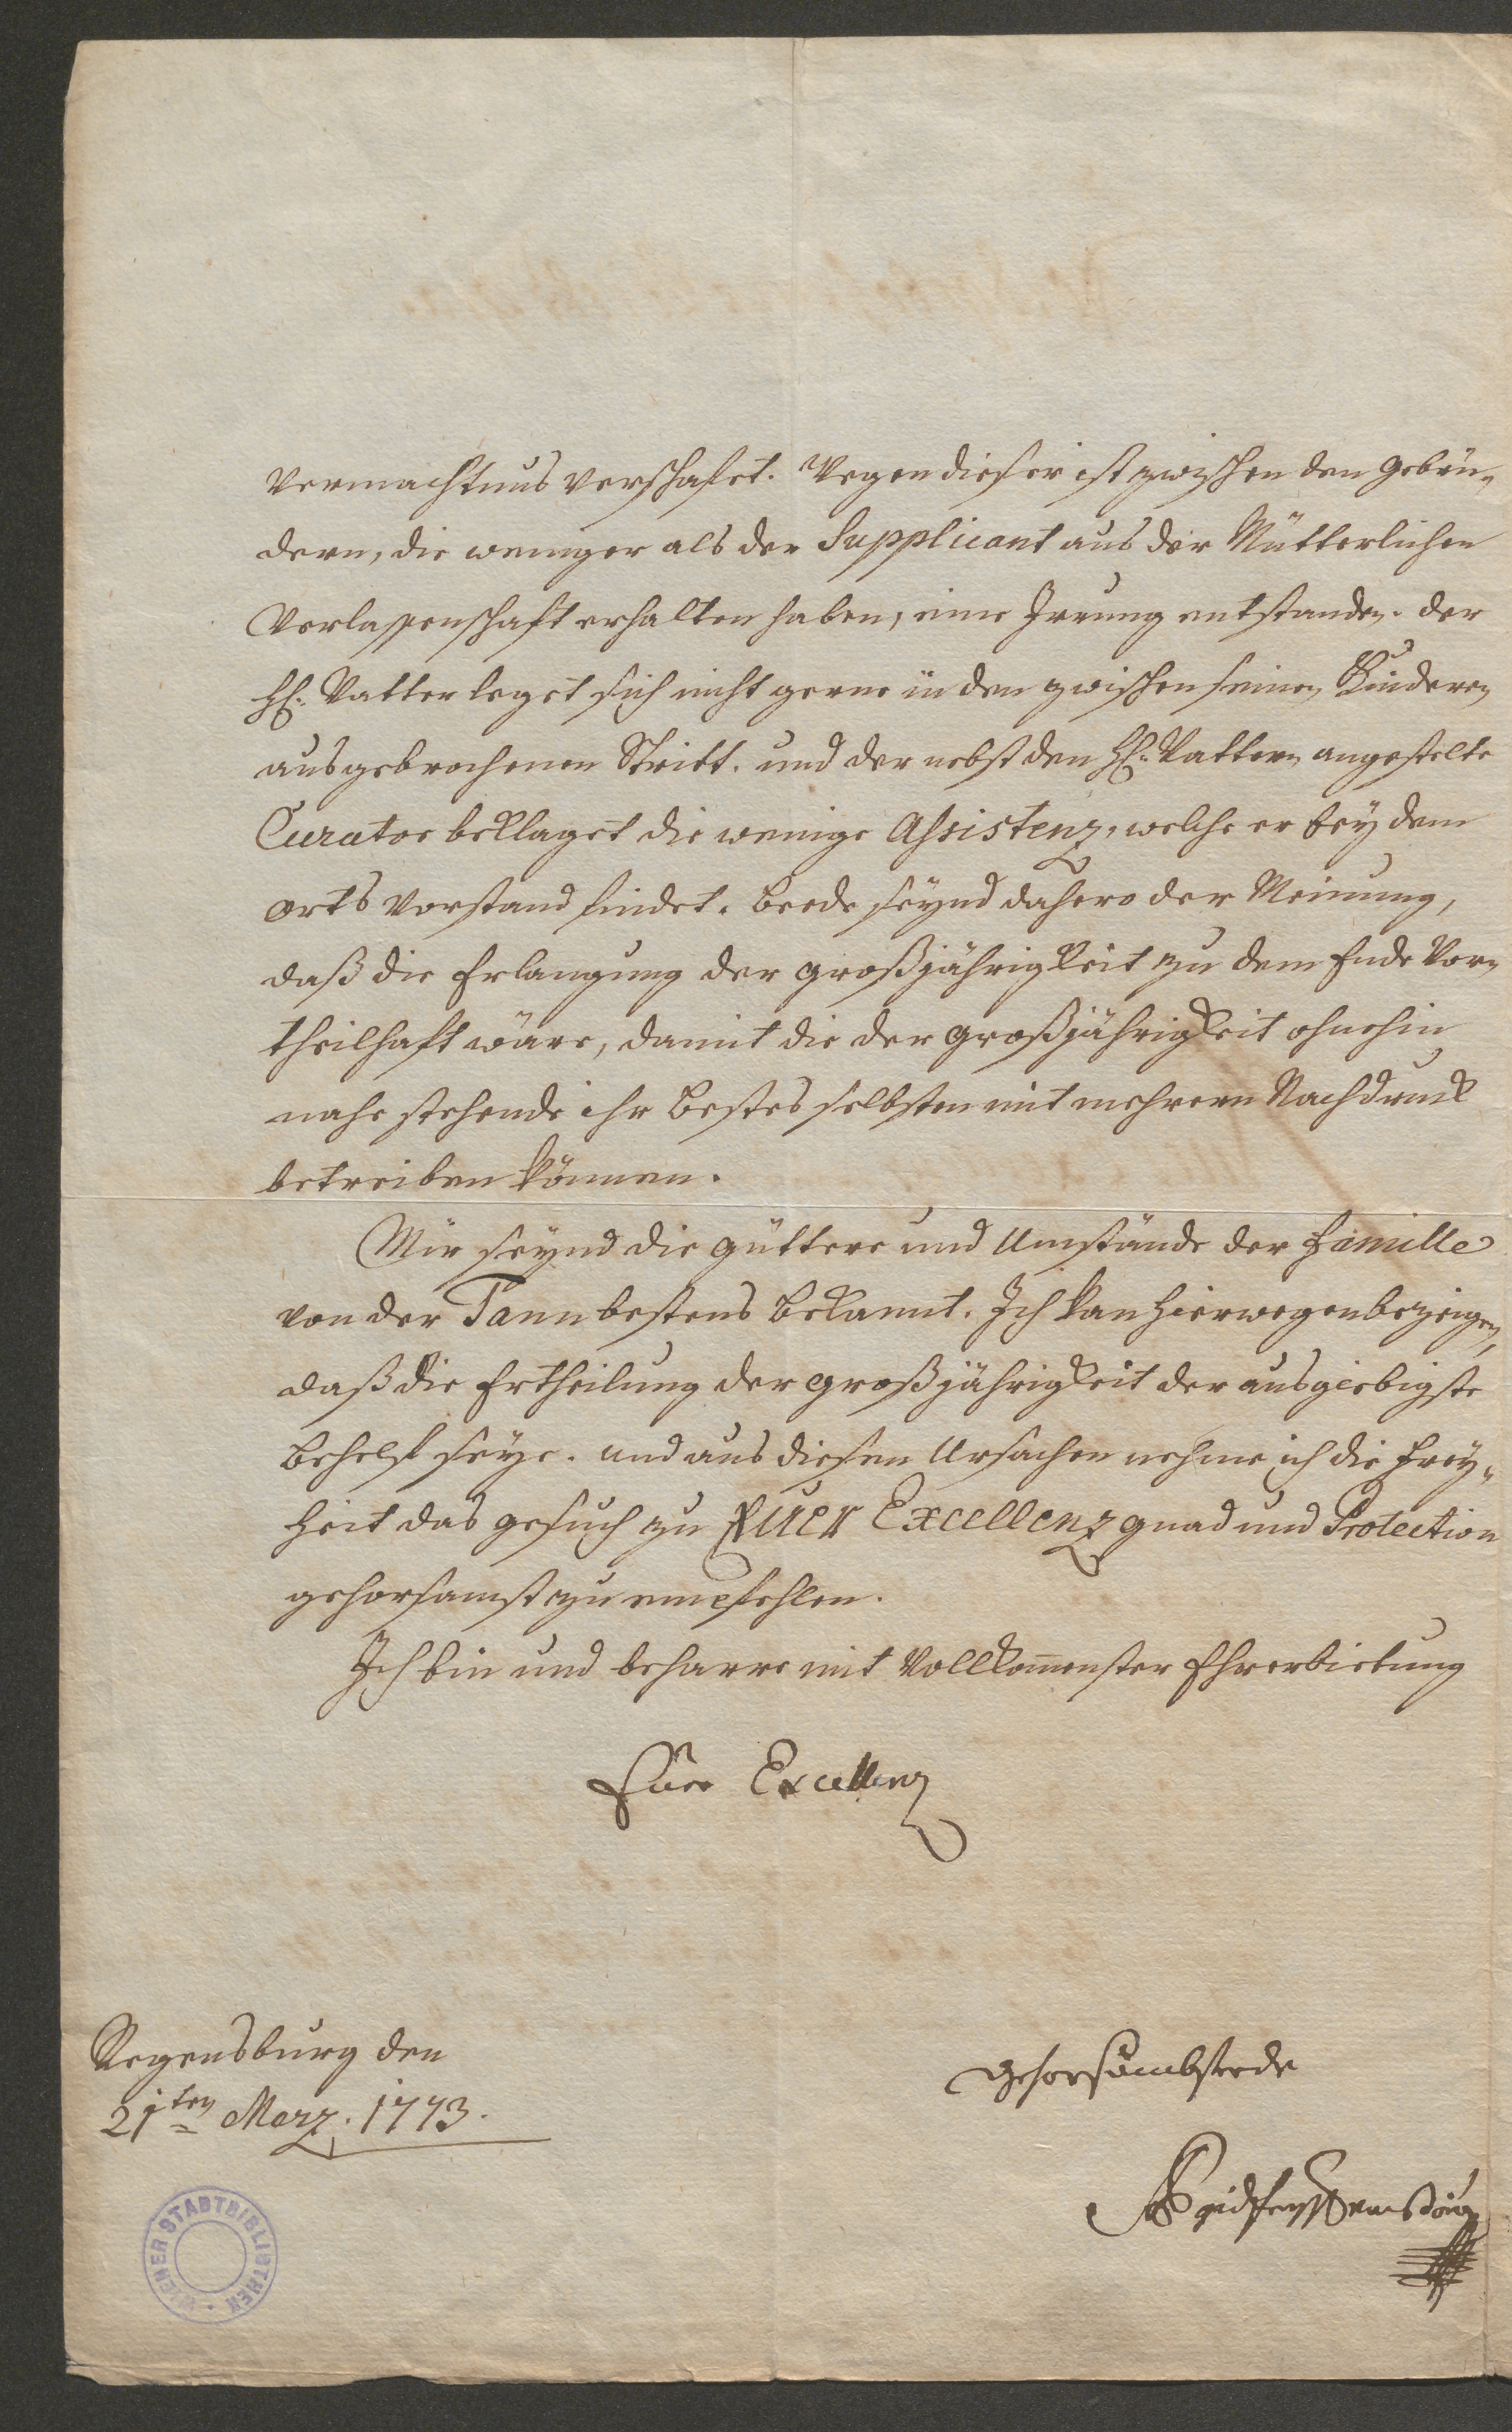 Vermachtnus verschafet. Wegen dieser ist zwischen den gebrü-
dern, die weniger als der Supplicant aus der Mütterlichen
Verlassenschaft erhalten haben, eine Irrung entstanden. der
H: Vatter leget sich nicht gerne in den zwischen seinen Kinderen
ausgebrochenen Stritt. und der nebst den H: Vattern angestelte
Curator beklaget die wenige Assistenz, welche er bey dem
orts Vorstand findet. beede seynd dahero der Meinung,
daß die Erlangung der großjährigkeit zu dem Ende Vor-
theilhaft wäre, damit die der großjährigkeit ohnehin
nahe stehende ihr bestes selbsten mit mehrern Nachdruck
betreiben können.
Mir seynd die gütter und Umstände der Famille
von der Tann bestens bekannt. Ich kan hierwegen bezeigen,
daß die Ertheilung der großjährigkeit der ausgiebigste
behelf seye. und aus diesen Ursachen nehme ich die Frey-
heit das gesuch zu Euer Excellenz gnad und Protection
gehorsamst zu empfehlen.
Ich bin und beharre mit Vollkom̄enster Ehrerbietung
Euer Excellenz
Regensburg den
21ten Marz. 1773.
gehorsambster
WIENER STADTBIBLIOTHEK